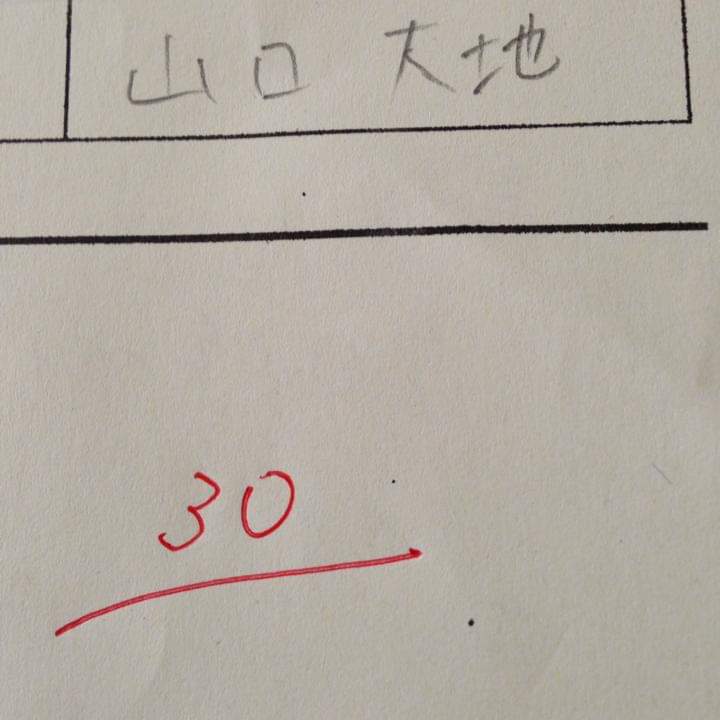 山口 大地
30